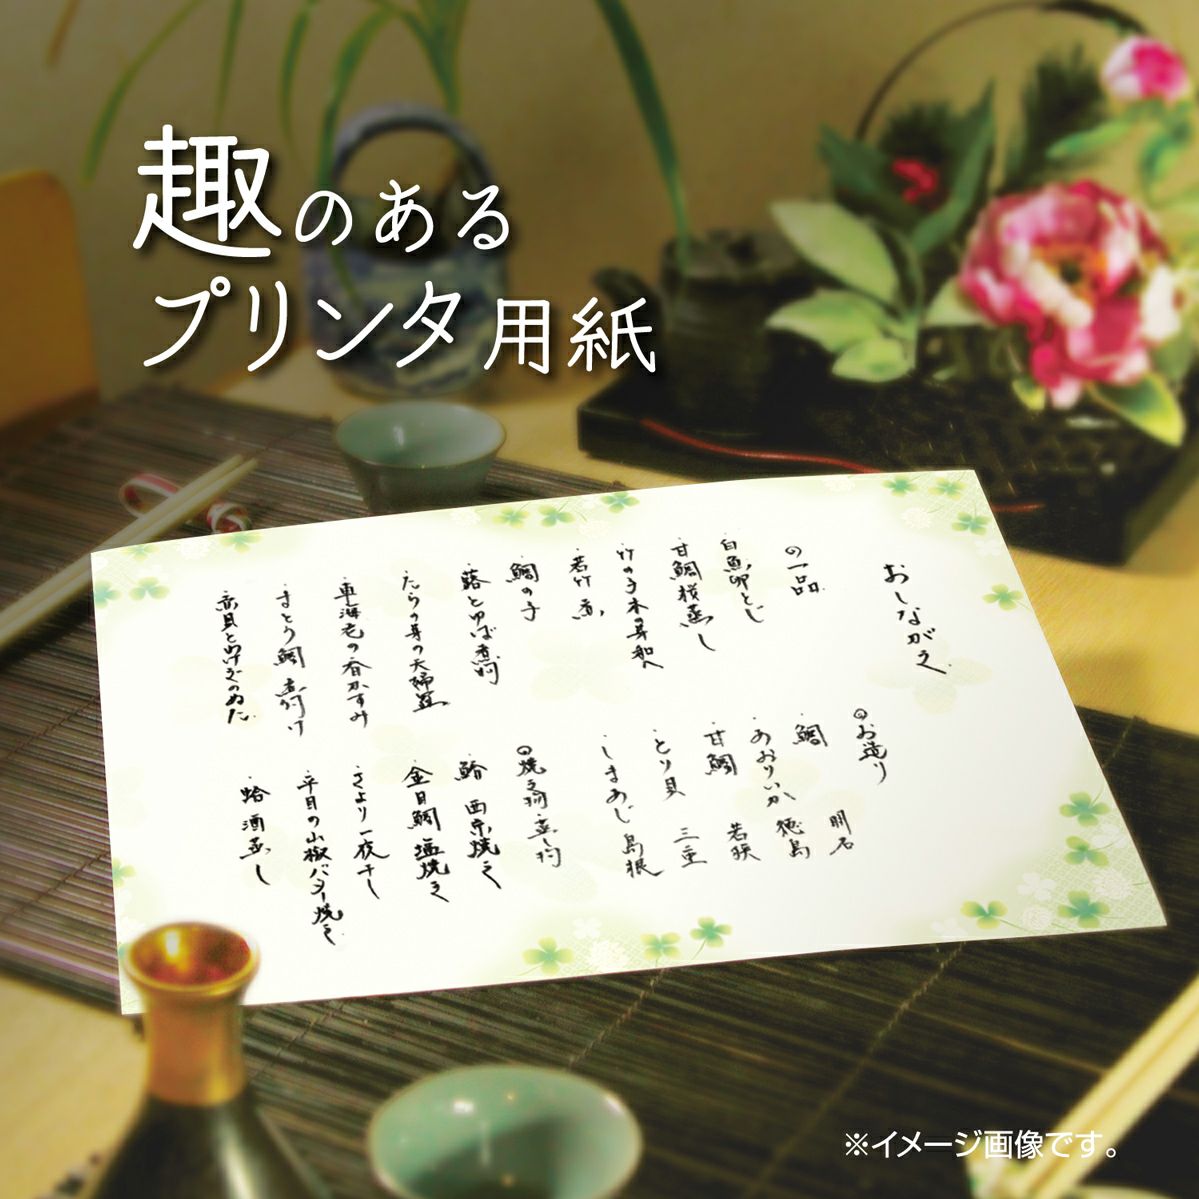 趣のある
プリンタ用紙
おしながき
の一品
・白魚卵とじ
・甘鯛桜蒸し
・竹の子木の芽和へ
・若竹煮
・鯛の子
・蕗とゆば煮物
・たらの芽の天婦羅
・車海老の香かすみ
・まとう鯛 煮付け
・赤貝とねぎのぬた
のお造り
・鯛 明石
・あおりいか 徳島
・甘鯛 若狭
・とり貝 三重
・しまあじ 島根
の焼き物 蒸し物
・鰆 西京焼き
・金目鯛塩焼き
・さより一夜干し
・平目の山椒バター焼き
・蛤 酒蒸し
※イメージ画像です。